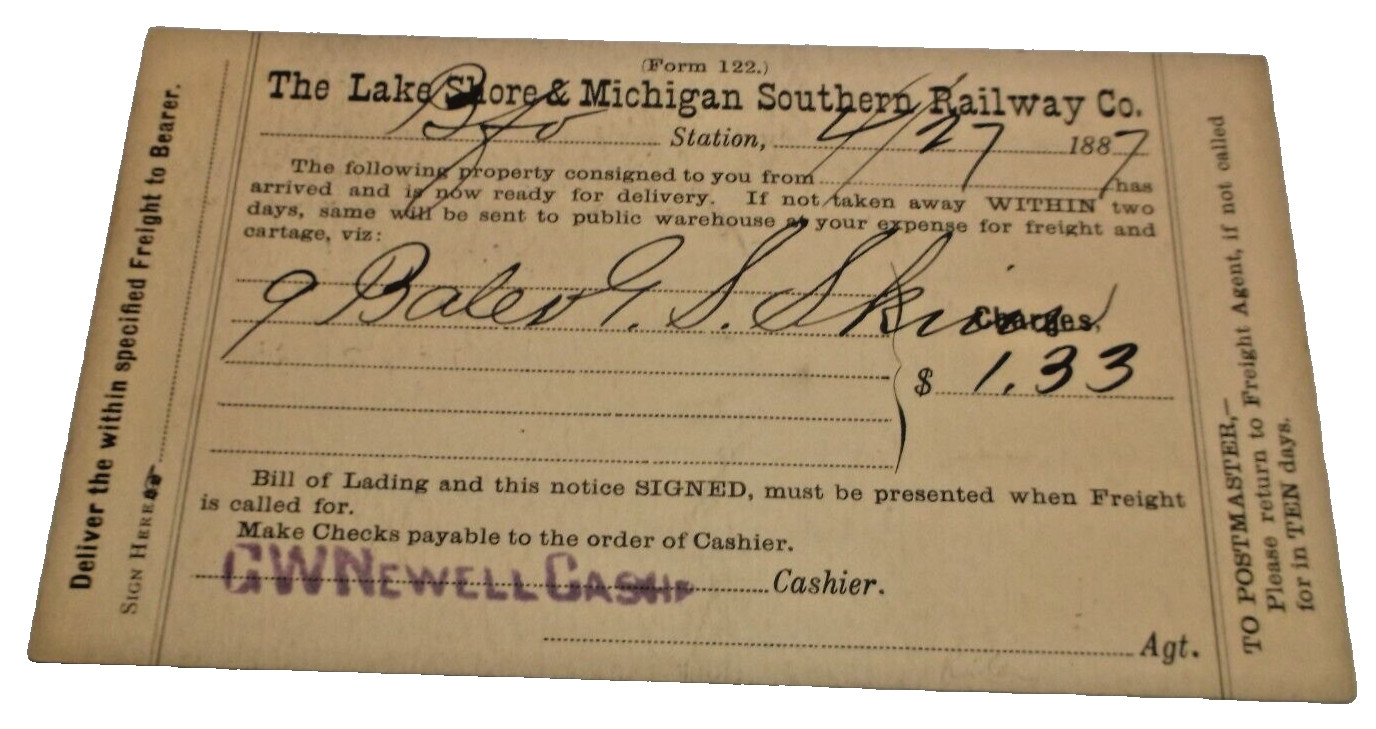 (Form 122.)
The Lake Shore & Michigan Southern Railway Co.
Bfo Station, 4/27 1887
The following property consigned to you from has
arrived and is now ready for delivery. If not taken away WITHIN two
days, same will be sent to public warehouse at your expense for freight and
cartage, viz:
9 Bales G. S. Skins
Charges,
$ 1.33
Bill of Lading and this notice SIGNED, must be presented when Freight
is called for.
Make Checks payable to the order of Cashier.
GWNEWELL CASHR Cashier.
Agt.
Deliver the within specified Freight to Bearer.
SIGN HERE
TO POSTMASTER,—
Please return to Freight Agent, if not called
for in TEN days.